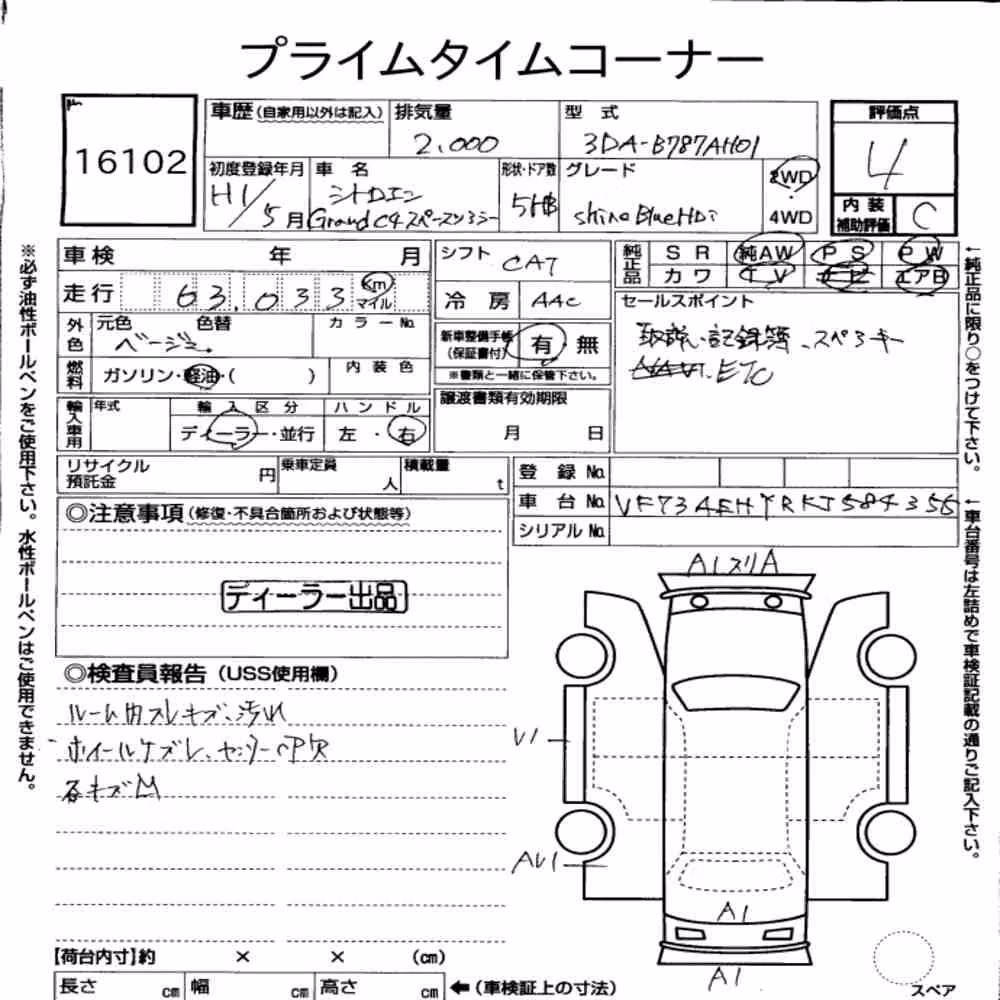 プライムタイムコーナー
16102
車歴(自家用以外は記入) 排気量 型式 評価点
2.000 3DA-B787AH01 4
初度登録年月 車名 形状・ドア数 グレード 2WD
H1/5月 シトロエン Grand C4 スペースツアラー 5HB Shine BlueHDi 4WD
内装補助評価 C
車検 年 月 シフト CAT 純正品 SR 純AW PS PW
カワ TV エアB
走行 63,033 km マイル 冷房 AAC セールスポイント
外色 元色 色替 カラーNo. 新車整備手帳(保証書付) 有・無 取説、記録簿、スペアキー
ベージュ ※書類と一緒に保管下さい。 ETC
燃料 ガソリン・軽油・( ) 内装色
輸入車用 年式 輸入区分 ハンドル 譲渡書類有効期限
ディーラー・並行 左・右 月 日
リサイクル預託金 円 乗車定員 人 積載量 t 登録No.
車台No. VF73AEHYRKJ584356
◎注意事項(修復・不具合箇所および状態等) シリアルNo.
ディーラー出品
◎検査員報告(USS使用欄)
ルーム内スレキズ、汚れ
各キズM
A1スリA
U1
AU1
A1
A1
スペア
【荷台内寸】約 × × (cm)
長さ cm 幅 cm 高さ cm ←(車検証上の寸法)
※必ず油性ボールペンをご使用下さい。水性ボールペンはご使用できません。
←純正品に限り○をつけて下さい。
←車台番号は左詰めで車検証記載の通りご記入下さい。